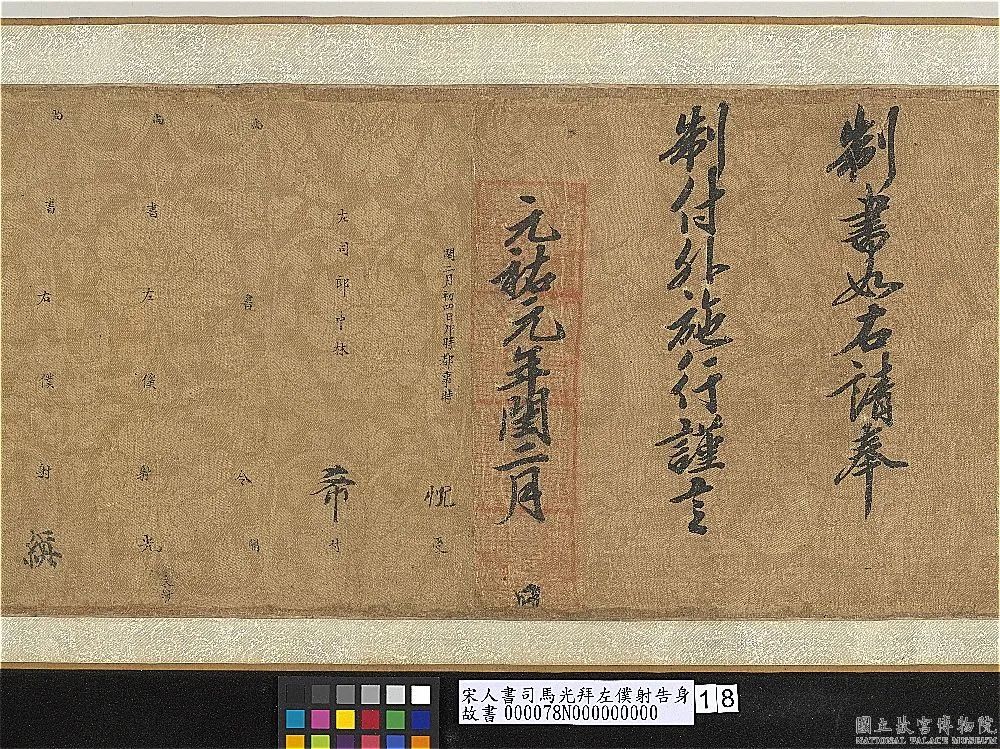 制書如右請奉
制付外施行謹言
元祐元年閏二月 日
閏二月初四日午時都事時
左司郎中林 希 付
尚書令 闕
尚書左僕射 光
尚書右僕射
宋人書司馬光拜左僕射告身
故書 000078N000000000
18
國立故宮博物院
NATIONAL PALACE MUSEUM